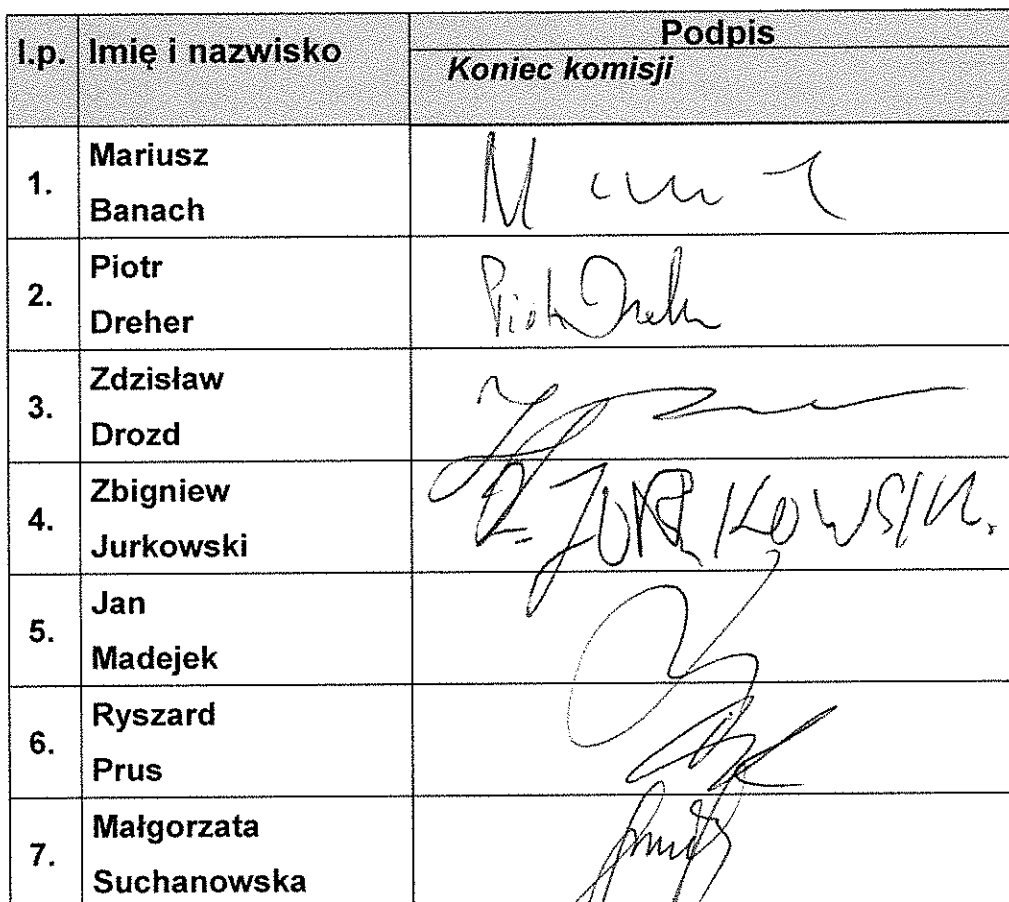 l.p. Imię i nazwisko Podpis
Koniec komisji
1. Mariusz
Banach
2. Piotr
Dreher
Piotr Dreher
3. Zdzisław
Drozd
4. Zbigniew
Jurkowski
Z. JURKOWSKI.
5. Jan
Madejek
6. Ryszard
Prus
7. Małgorzata
Suchanowska